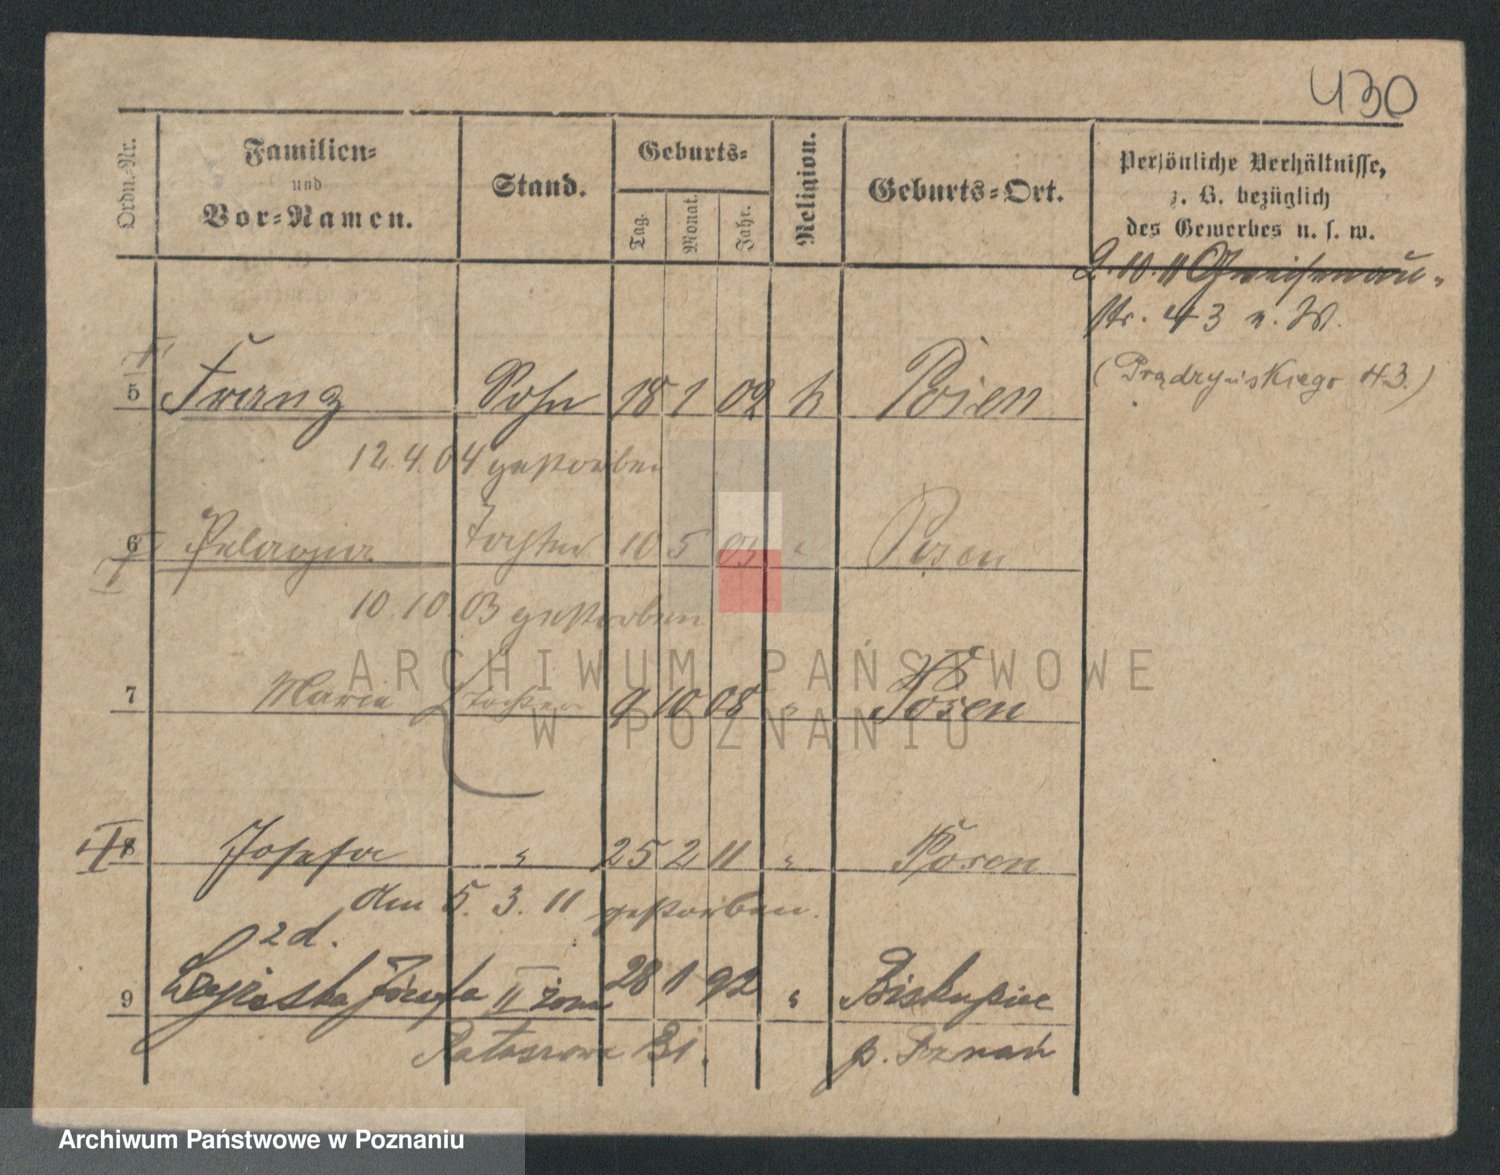 430
Ordn.-Nr.
Familien-
und
Vor-Namen.
Stand.
Geburts-
Tag.
Monat.
Jahr.
Religion.
Geburts-Ort.
Persönliche Verhältnisse,
z. B. bezüglich
des Gewerbes u. s. w.
2.10.11 Gneisenau-
str. 43 v. W.
(Prądzyńskiego 43.)
5 Franz Sohn 18 1 02 k Posen
12.4.04 gestorben
6 Pelagia Tochter 10 5 03 " Posen
10.10.03 gestorben
7 Marie Tochter 9 10 08 " Posen
8 Josefa " 25 2 11 " Posen
am 5.3.11 gestorben.
2 d.
9 Józefa II żona 28 1 92 " Biskupice
Ratajczaka 31. p. Poznań
ARCHIWUM PAŃSTWOWE
W POZNANIU
Archiwum Państwowe w Poznaniu